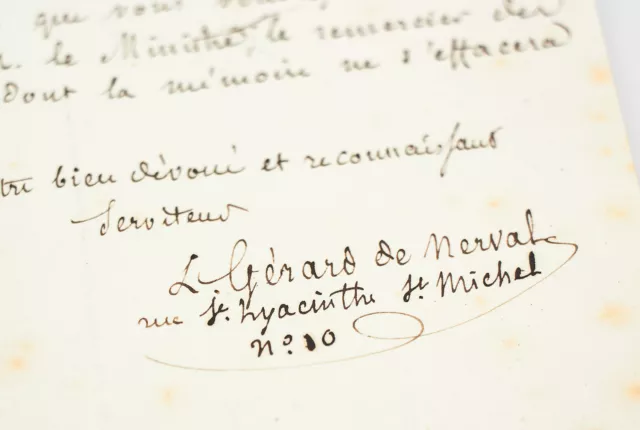 que vous
le Ministre, le remercier des
dont la mémoire ne s'effacera
tre bien dévoué et reconnaissant
Serviteur
L. Gérard de Nerval
rue St. hyacinthe St. Michel
No. 10